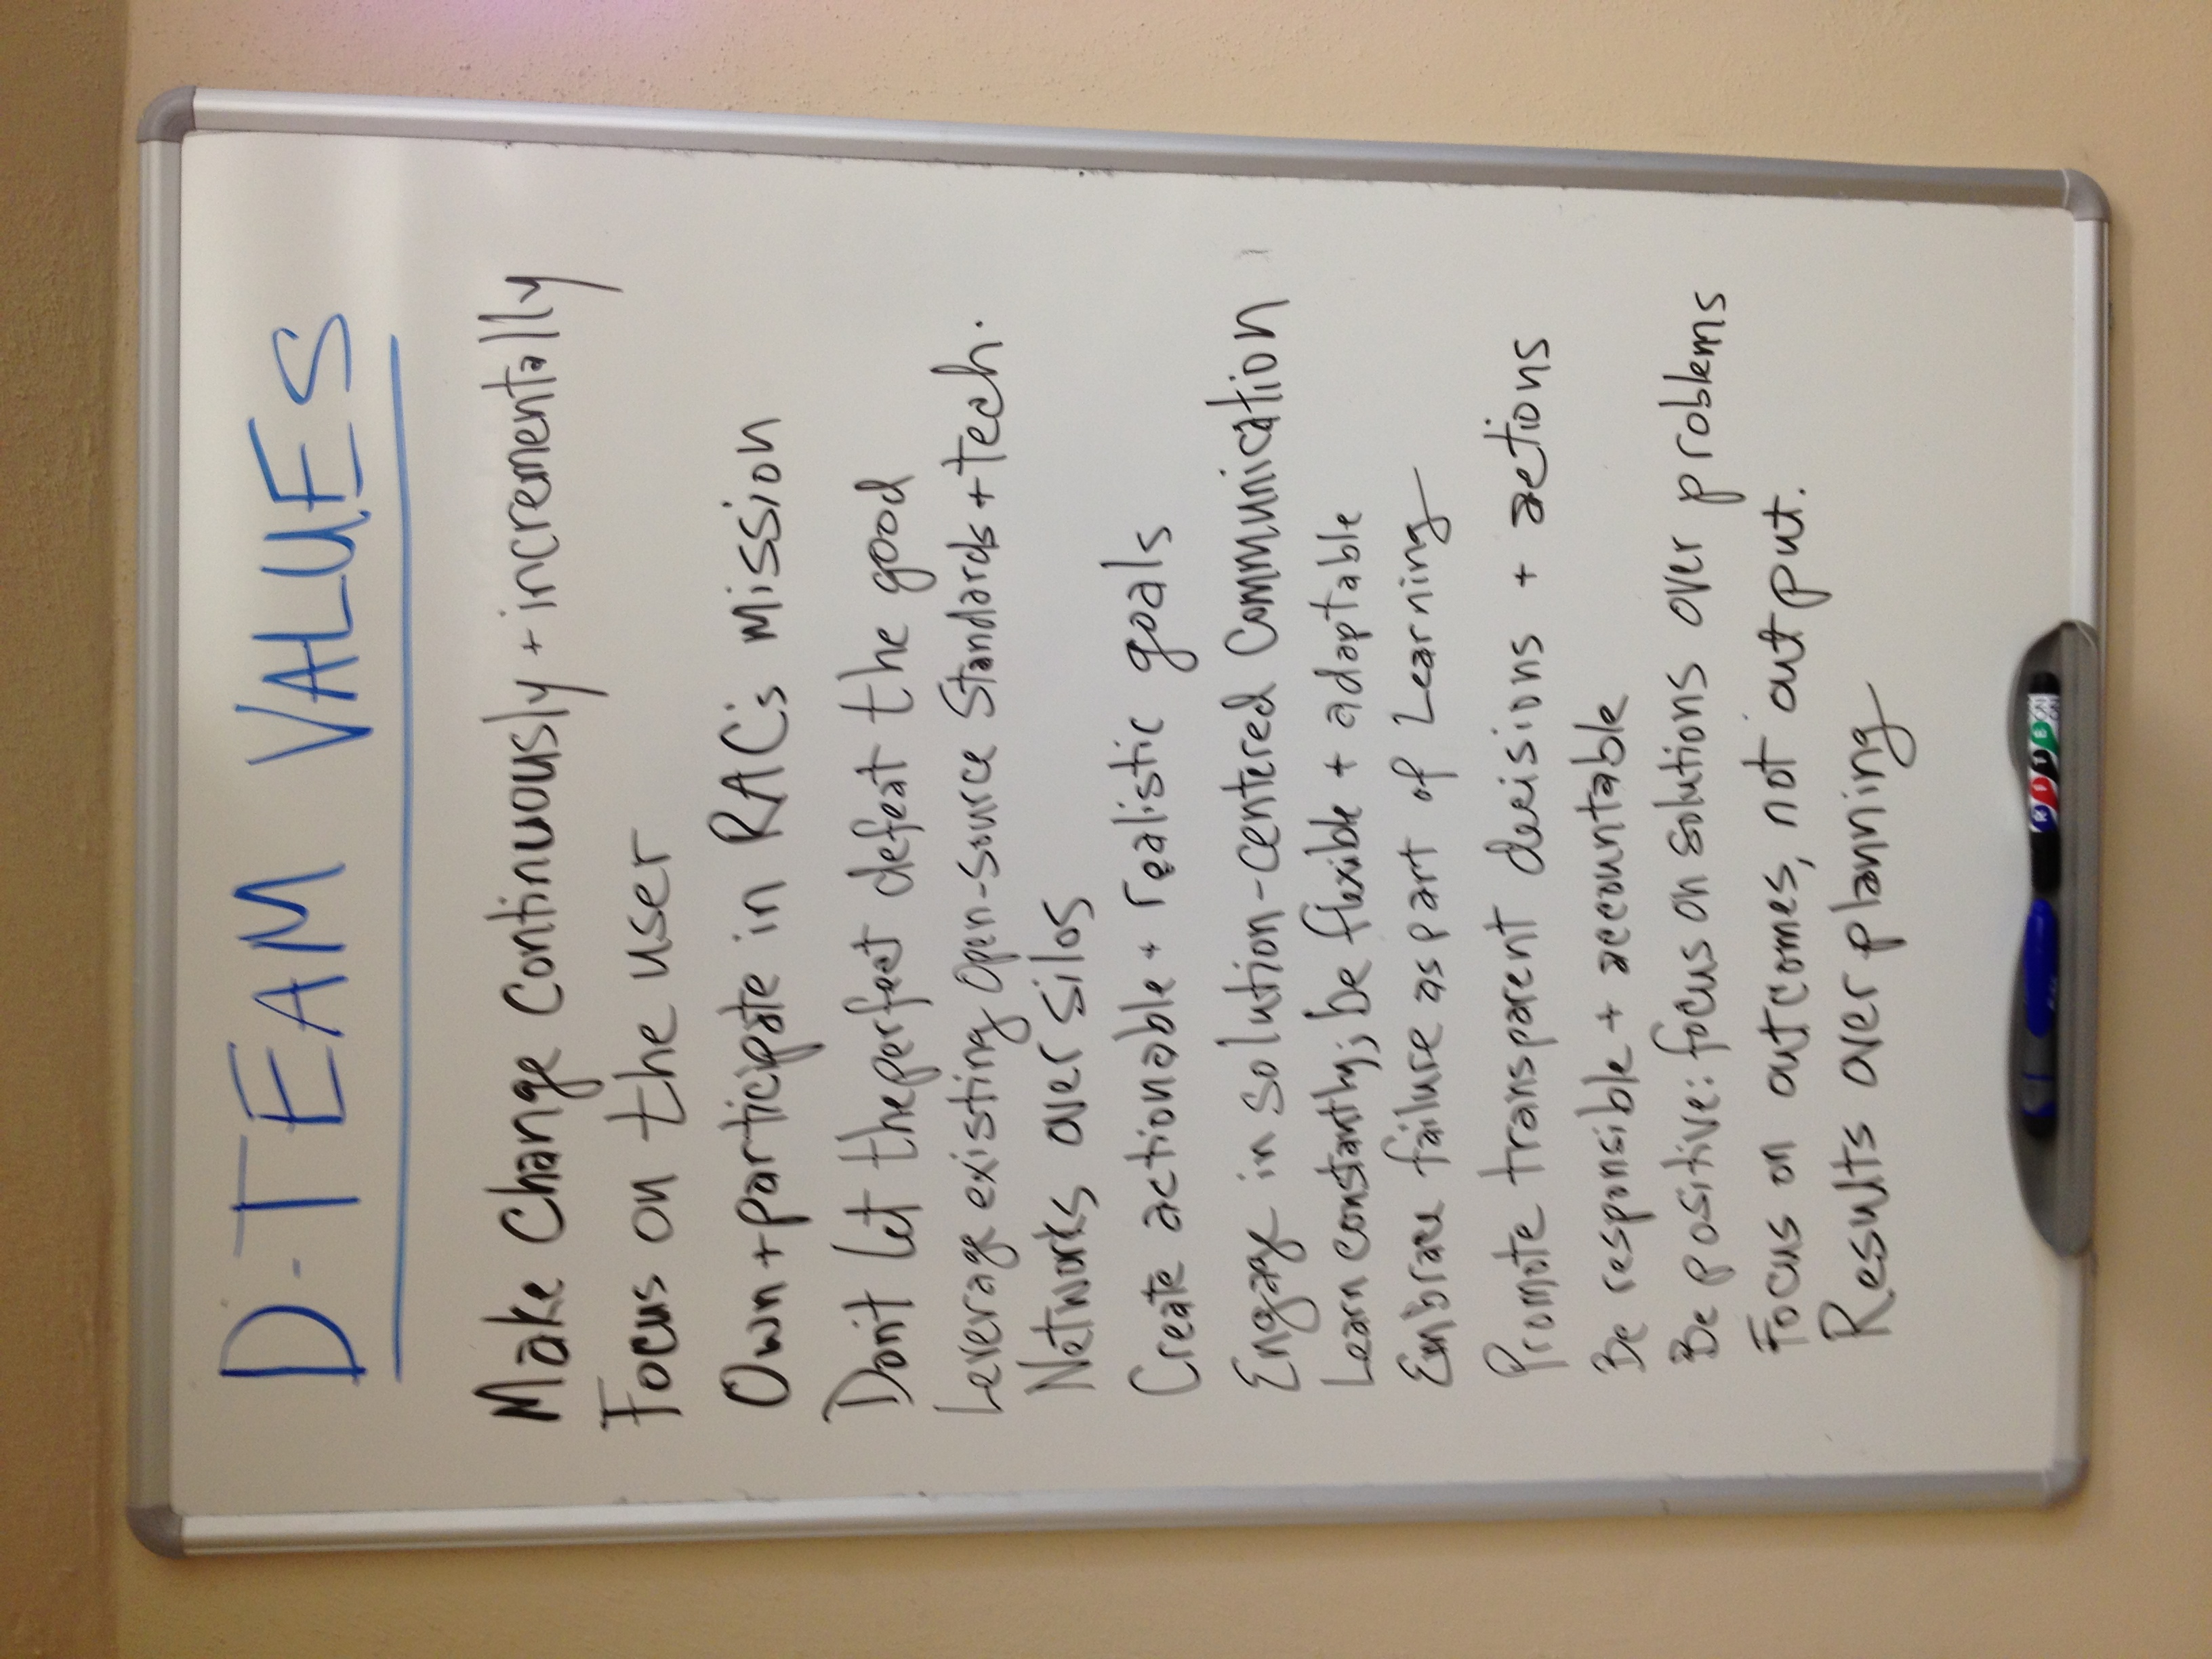 D-TEAM VALUES
Make Change Continuously + incrementally
Focus on the user
Own + participate in RAC's mission
Don't let the perfect defeat the good
Leverage existing open-source Standards + tech.
Networks over silos
Create actionable + realistic goals
Engage in solution-centered communication
Learn constantly; be flexible + adaptable
Embrace failure as part of Learning
Promote transparent decisions + actions
Be responsible + accountable
Be positive: focus on solutions over problems
Focus on outcomes, not output.
Results over planning